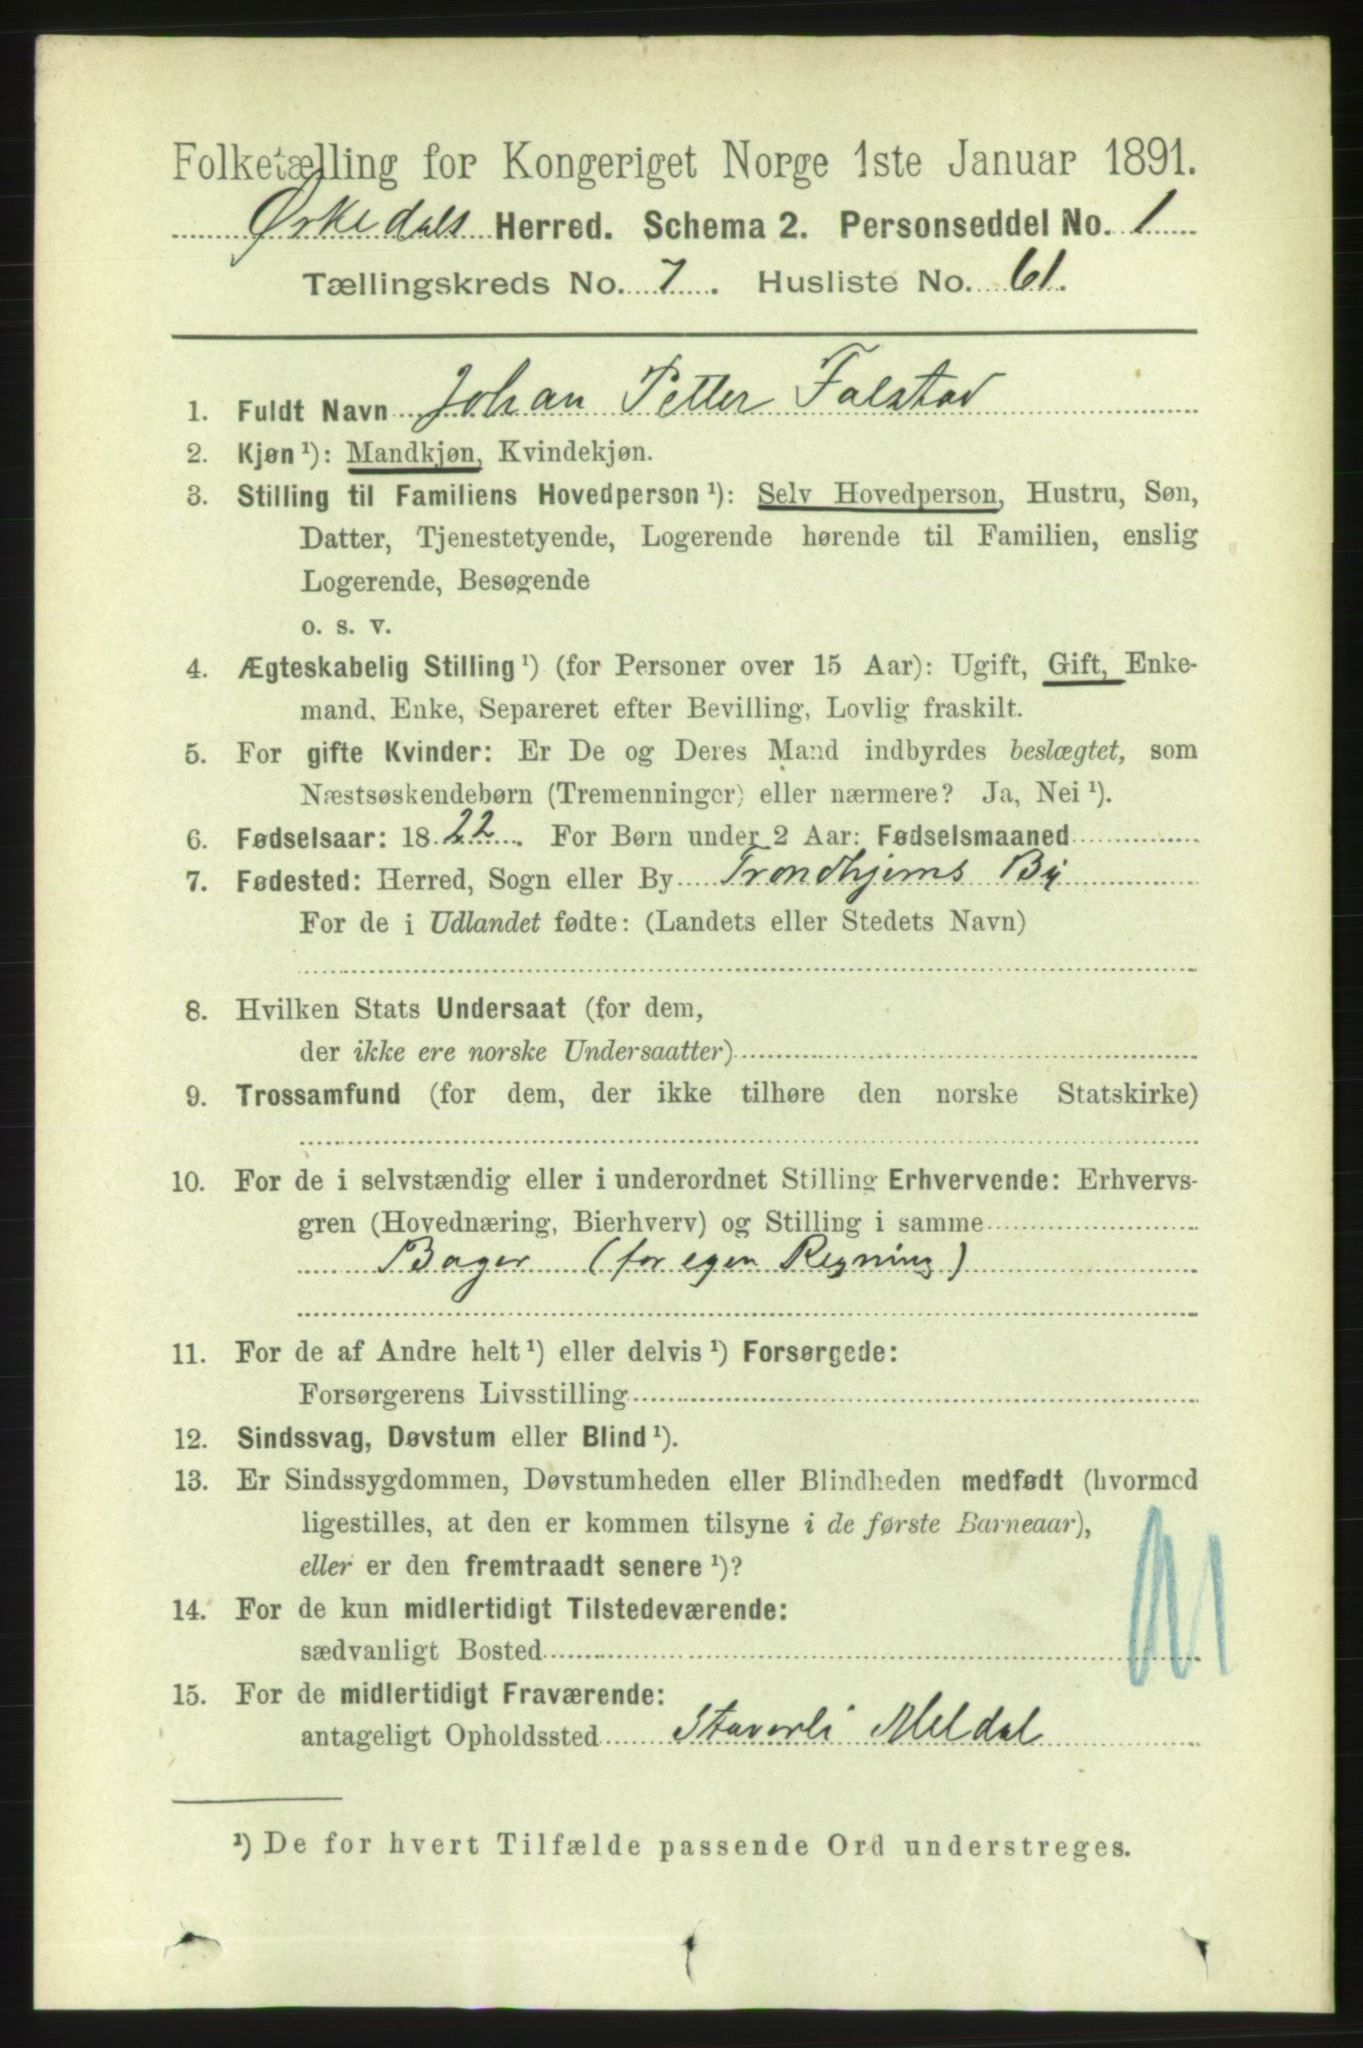 Folketælling for Kongeriget Norge 1ste Januar 1891.
Ørkedals Herred. Schema 2. Personseddel No. 1
Tællingskreds No. 7. Husliste No. 61.
1. Fuldt Navn Johan Petter Falstad
2. Kjøn ¹): Mandkjøn, Kvindekjøn.
3. Stilling til Familiens Hovedperson ¹): Selv Hovedperson, Hustru, Søn,
Datter, Tjenestetyende, Logerende hørende til Familien, enslig
Logerende, Besøgende
o. s. v.
4. Ægteskabelig Stilling ¹) (for Personer over 15 Aar): Ugift, Gift, Enke-
mand, Enke, Separeret efter Bevilling, Lovlig fraskilt.
5. For gifte Kvinder: Er De og Deres Mand indbyrdes beslægtet, som
Næstsøskendebørn (Tremenninger) eller nærmere? Ja, Nei ¹).
6. Fødselsaar: 1822. For Børn under 2 Aar: Fødselsmaaned
7. Fødested: Herred, Sogn eller By Trondhjems By
For de i Udlandet fødte: (Landets eller Stedets Navn)
8. Hvilken Stats Undersaat (for dem,
der ikke ere norske Undersaatter)
9. Trossamfund (for dem, der ikke tilhøre den norske Statskirke)
10. For de i selvstændig eller i underordnet Stilling Erhvervende: Erhvervs-
gren (Hovednæring, Bierhverv) og Stilling i samme
Bager (for egen Regning)
11. For de af Andre helt ¹) eller delvis ¹) Forsørgede:
Forsørgerens Livsstilling
12. Sindssvag, Døvstum eller Blind ¹).
13. Er Sindssygdommen, Døvstumheden eller Blindheden medfødt (hvormed
ligestilles, at den er kommen tilsyne i de første Barneaar),
eller er den fremtraadt senere ¹)?
14. For de kun midlertidigt Tilstedeværende:
sædvanligt Bosted
15. For de midlertidigt Fraværende:
antageligt Opholdssted Staverli Meldal
¹) De for hvert Tilfælde passende Ord understreges.